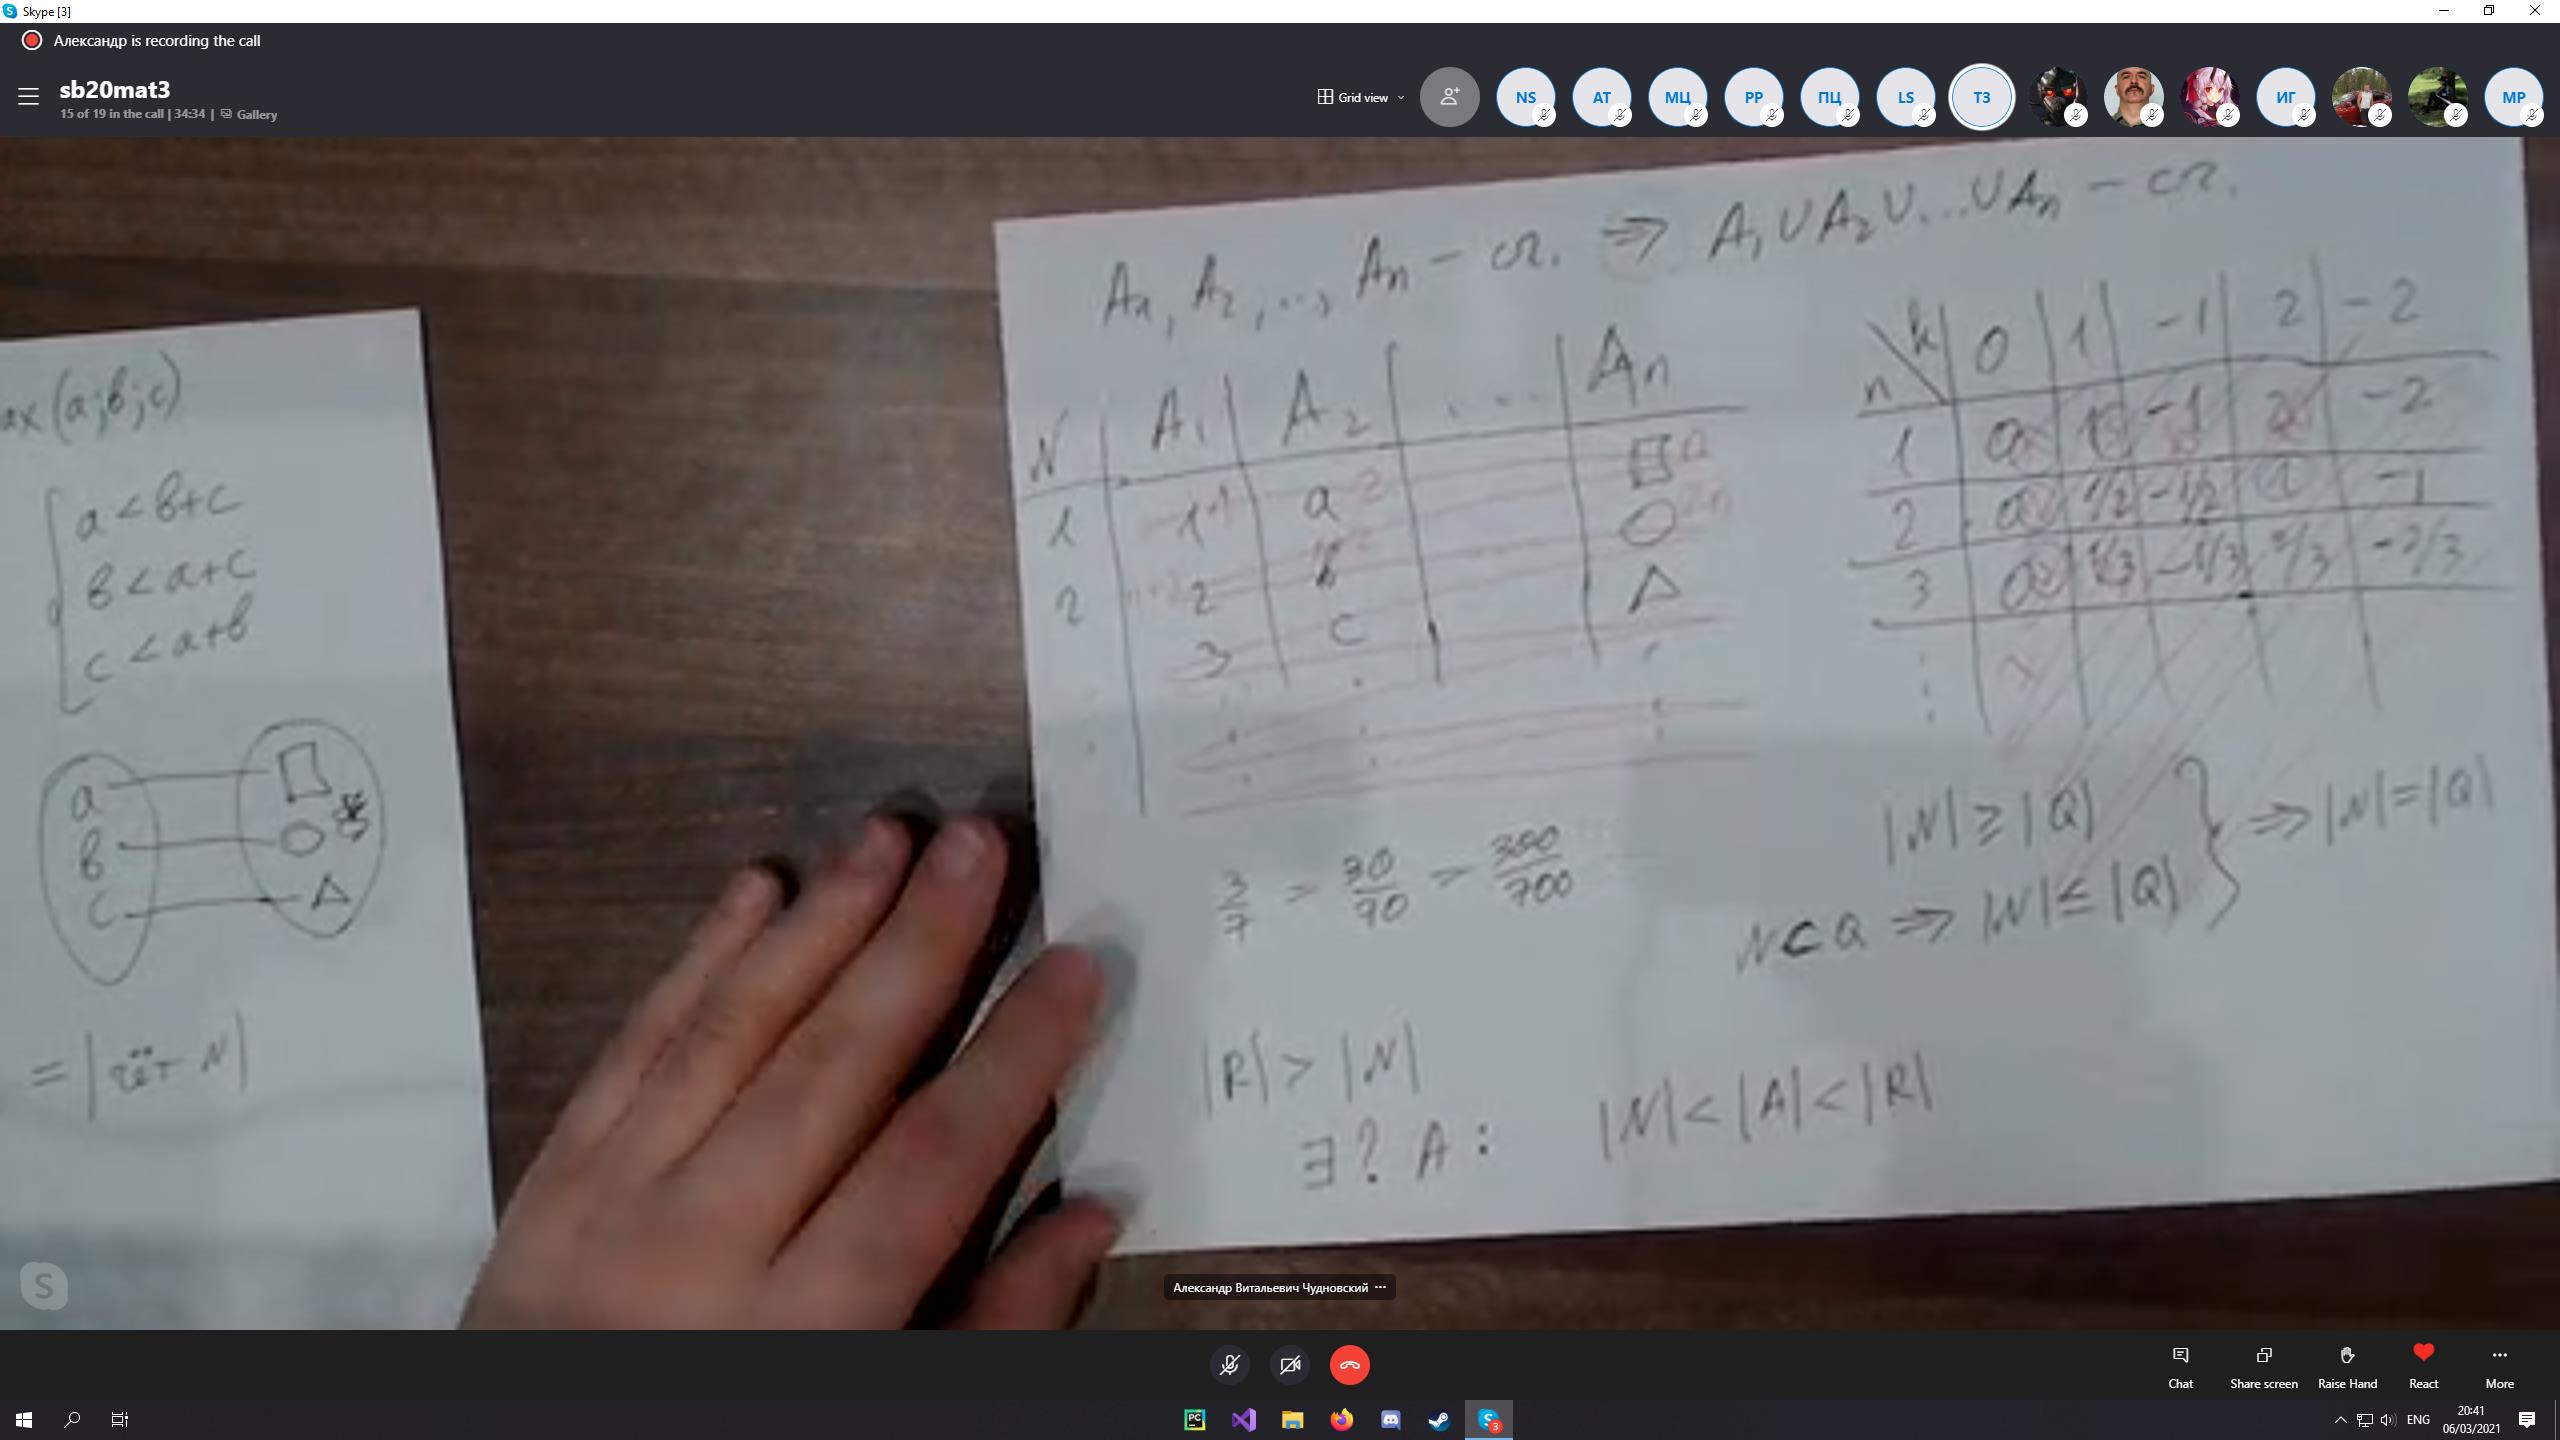 Skype [3]
Александр is recording the call
sb20mat3
15 of 19 in the call | 34:34 | Gallery
Grid view
NS
AT
МЦ
PP
ПЦ
LS
ТЗ
ИГ
MP
ax(a;b;c)
a < b+c
b < a+c
c < a+b
a
b
c
= |чёт N|
A₁, A₂, ..., Aₙ – сч. ⇒ A₁∪A₂∪...∪Aₙ – сч.
N A₁ A₂ ... Aₙ
1 1 a
2 2 b
3 c
n k 0 1 -1 2 -2
1 0 1 -1 2 -2
2 0 1/2 -1/2 1 -1
3 0 1/3 -1/3 2/3 -2/3
3/7 = 30/70 = 300/700
|N| ≥ |Q|
N⊂Q ⇒ |N| ≤ |Q| } ⇒ |N| = |Q|
|R| > |N|
∃? A: |N| < |A| < |R|
Александр Витальевич Чудновский
Chat
Share screen
Raise Hand
React
More
PC
S 3
ENG
20:41
06/03/2021